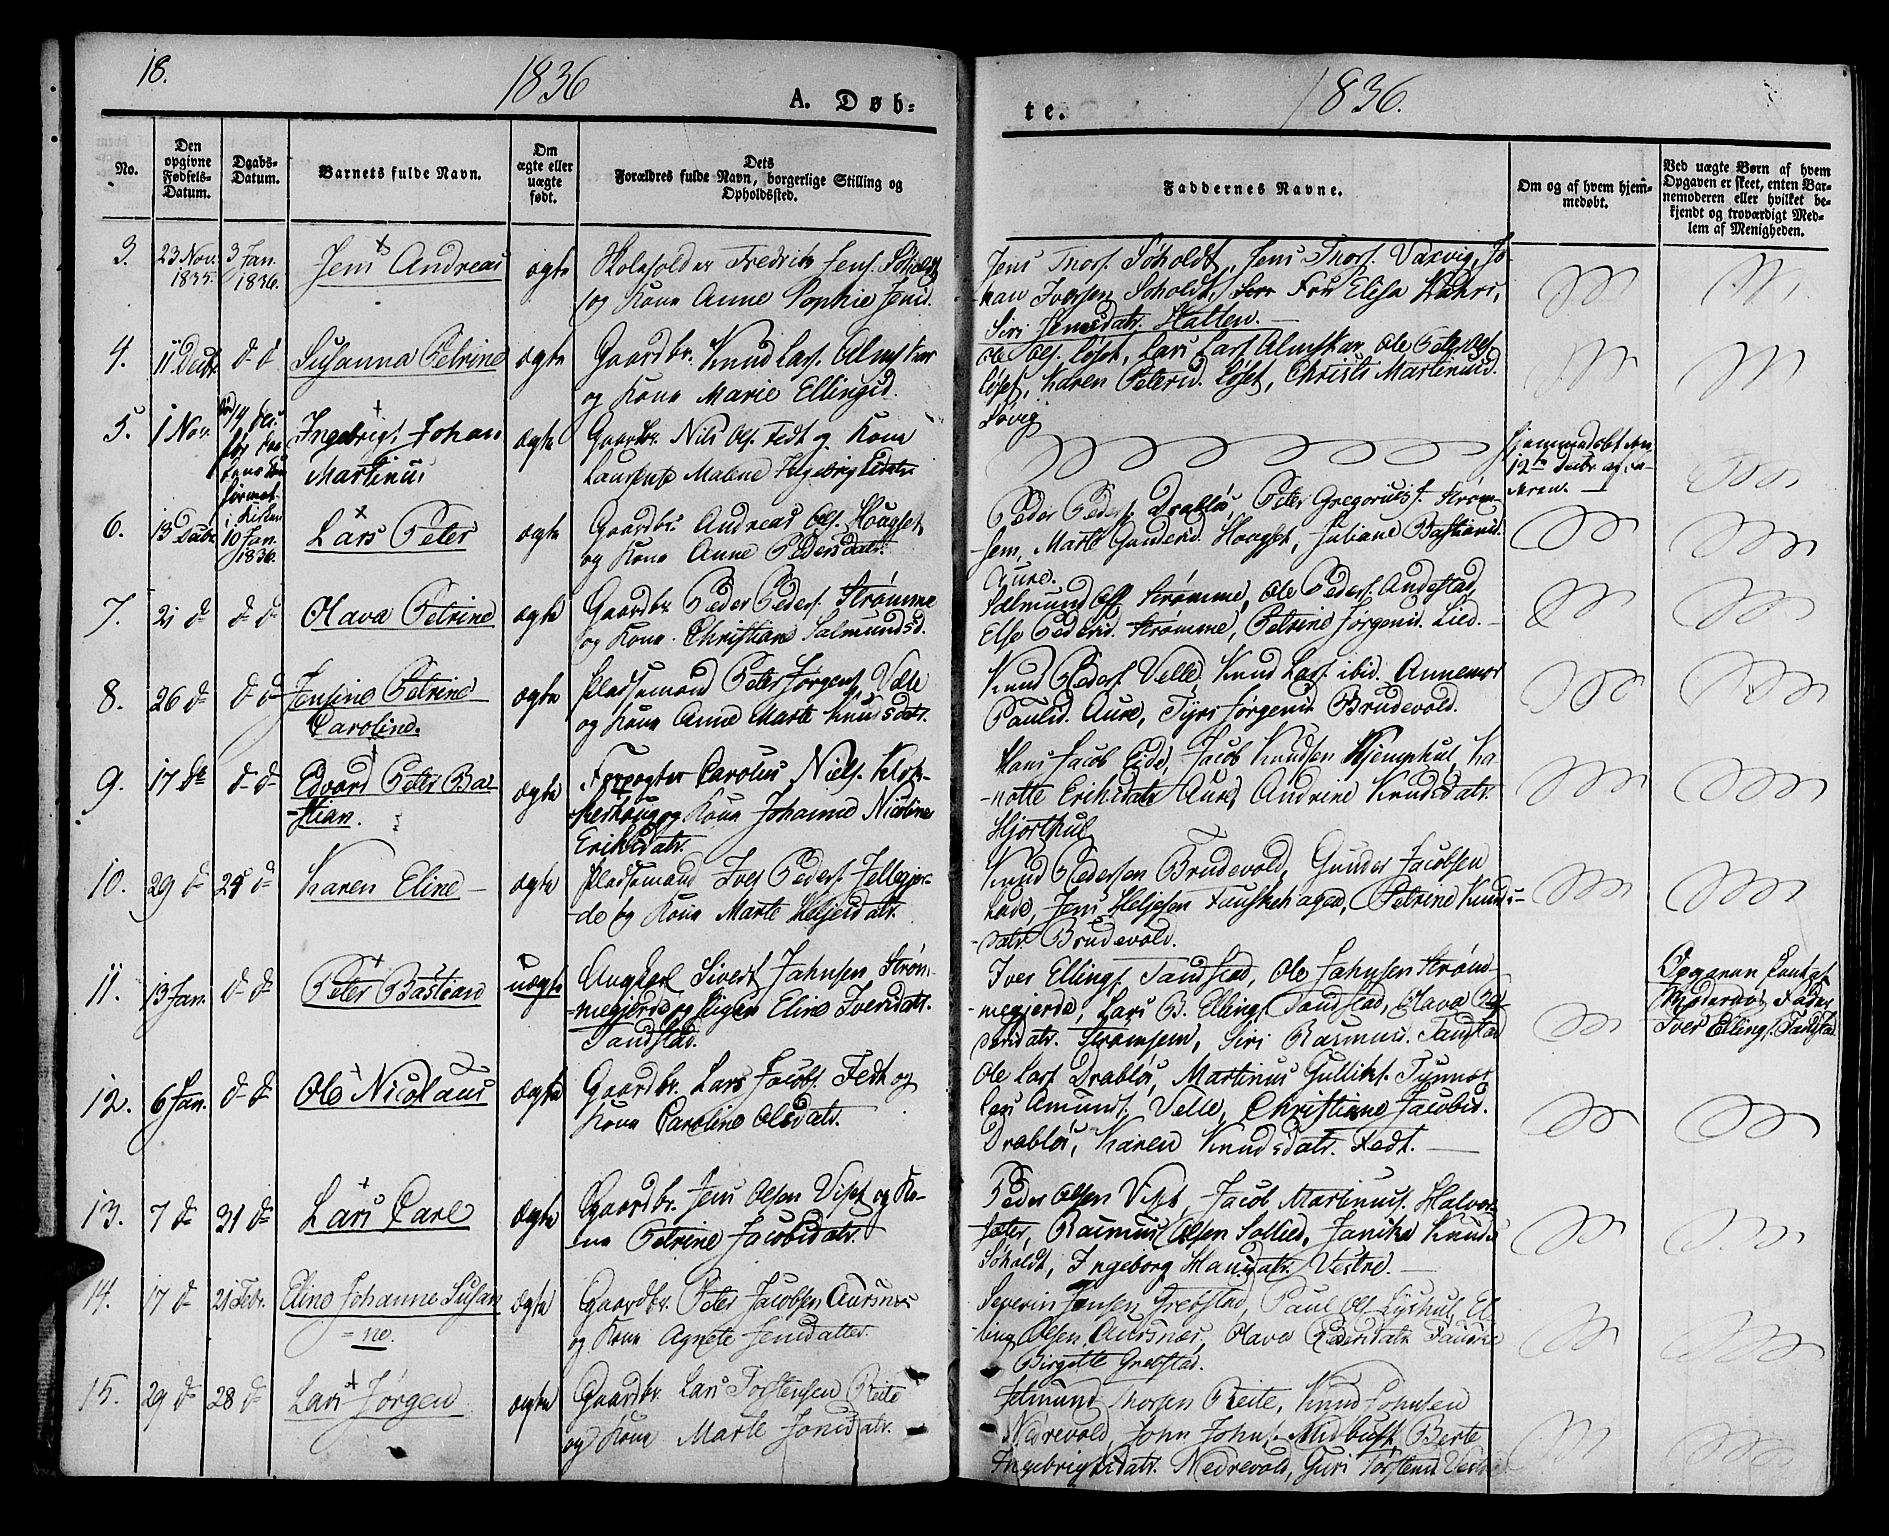 18.
1836
A. Døb-
te.
1836.
No.
Den opgivne Fødsels-Datum.
Daabs-Datum.
Barnets fulde Navn.
Om ægte eller uægte født.
Dets Forældres fulde Navn, borgerlige Stilling og Opholdssted.
Faddernes Navne.
Om og af hvem hjemmedøbt.
Ved uægte Børn af hvem Opgaven er skeet, enten Barnemoderen eller hvilket bekjendt og troværdigt Medlem af Menigheden.
3. 23 Nov. 1835. 3 Jan. 1836. Jens Andreas ægte
Skoleholder Fredrik Jens.
og Kone Anne Sophie Jensd.
Jens Thors. Søholdt, Jens Thors. Vaxvig, Jo-
han Iversen Søholdt, Fru Elisa
Siri Jensdatr. Hatlen.
4. 11 Decbr. d d Susanna Petrine ægte
Gaardbr. Knud Lars. Almskar
og Kone Marie Ellingsd.
Ole Ols. Løset, Lars Lars. Almskar, Ole Peters.
Løset, Karen Petersd. Løset, Christi Martinusd.
Søvig
5. 1 Nov. Ingebrigt Johan
Martinus ægte
Gaardbr. Nils Ols. Fedt og Kone
Malene
Hjemmedøbt den
12te Decbr. af
6. 13 Decbr. 10 Jan. 1836. Lars Peter ægte
Gaardbr. Andreas Ols. Hougset
og Kone Anne Pedersdatr.
Peder Peders. Drabløs, Peter Gregorius. Strøm-
sem, Marte Gundersd. Hougset, Juliane Bastiansd.
Aure.
7. 21 d d d Olava Petrine ægte
Gaardbr. Peder Peders. Strømme
og Kone Christiane Salmundsd.
Salmund Ols. Strømme, Ole Peders. Andestad,
Else Pedersd. Strømme, Petrine Jørgensd. Lied.
8. 26 d d d Jensine Petrine
Caroline. ægte
Pladsemand Peter Jørgens. Velle
og Kone Anne Marte Knudsdatr.
Knud Peders. Velle, Knud Lars. ibid. Annemor
Paulsd. Aure, Jørgensd. Brudevold.
9. 17 d d d Edvard Peter Ba-
stian. ægte
Forpagter Carolus Niels.
og Kone Johanne Nicoline
Eriksdatr.
Hans Jacob Eide, Jacob Knudsen
Eriksdatr. Aure, Andrine Knudsdatr.
Hjorthul
10. 29 d 24 d Karen Eline ægte
Pladsemand Iver Peders.
og Kone Marte Heljesdatr.
Knud Pedersen Brudevold, Gunder Jacobsen
Jens Heljesen Fauskehagen, Petrine Knuds-
datr. Brudevold.
11. 13 Jan. d d Peter Bastian uægte
Ungkarl Sivert Jahnsen Strøm-
megjerde og Pigen Eline Iversdatr.
Tandstad.
Iver Ellings. Tandstad, Ole Jahnsen Strøm-
megjerde, Lars B. Ellings. Tandstad, Olava Pe-
dersdatr. Strømsem, Siri Rasmusd. Tandstad
Opgaven
Moderens Fader
Iver Ellings. Tandstad
12. 6 Jan. d d Ole Nicolaus ægte
Gaardbr. Lars Jacobs. Fedt og
Kone Caroline Olsdatr.
Ole Lars. Drabløs, Martinus Gulliks. Tynnes
Lars Amunds. Velle, Christiane Jacobsd.
Drabløs, Karen Knudsdatr. Fedt.
13. 7 d 31 d Lars Carl ægte
Gaardbr. Jens Olsen Viset og Ko-
ne Petrine Jacobsdatr.
Peder Olsen Viset, Jacob Martinus. Halvor-
sæter, Rasmus Olsen Sollied, Janika Knuds
Søholdt, Ingeborg Hansdatr. Vestre.
14. 17 d 21 Febr. Eline Johanne Susan-
ne. ægte
Gaardbr. Peter Jacobsen Aursnes
og Kone Agnete Jensdatter.
Severin Jensen Grebstad, Paul Ols. Lyshul, El-
ling Olsen Aursnes, Olava Pedersdatr.
Birgitte Grebstad.
15. 29 d 28 d Lars Jørgen ægte
Gaardbr. Lars Torstensen Reite
og Kone Marte Jonsdatr.
Thorsen Reite, Knud Johnsen
Nedrevold, John Johns. Midbust, Berte
Ingebrigtsdatr. Nedrevold, Guri Torstensd.